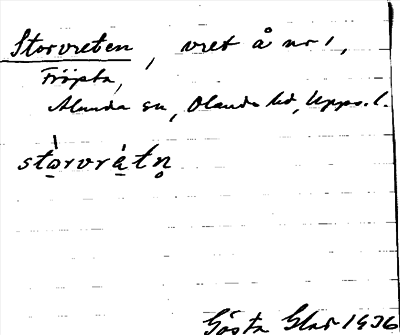 Storvreten, vret å nr 1,
Fröpta,
Alunda sn, Olands hd, Upps. l.
stòrvràtn̥
Gösta Glar 1936